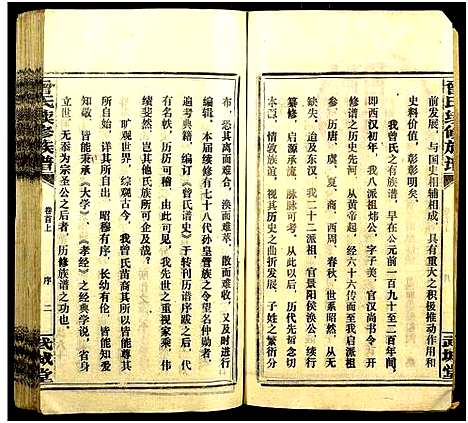 曾氏续修族谱
武城堂
前发展。与国史相辅相成，具有重大之积极推动作用和
史料价值，彰彰明矣。
我曾氏之有族谱，早在公元前一百九十至二百年间，
即西汉初年，我八派祖炜公，字子美，官汉尚书令，开
修谱之历史先河。从黄帝起，经六十六传而至我启派祖
参。历唐、虞、夏、商、西周、春秋，世系昭然，从无
缺失。迨及东汉，我二十二派祖，官景阳侯涣公，实行
纂修，启源承流，脉脉可考。从此以后，历代先哲切
本，情敦族谊，视其历史之曲折发展，子姓之繁衍分
布，恐其离而难合，涣而难萃，散而难收，又及时进行
编辑。本届续修有七十八代孙皇督族之令望名仲勋者，
遍考典籍，编订《曾氏谱史》于转刊历谱序跋之后，至今
有名帙，历历可稽。由此可见，我先世之重视家乘，伟
绩斐然，岂其他氏族所可企及哉？
旷观世界，综观古今，我曾氏苗裔其所以皆能尊其
所自始，详其所自出，昭穆有序，长幼有伦，皆能知
知敬，皆能秉承《大学》、《孝经》之经典学说，省身
立世，无忝为宗圣公之后者，历修族谱之功也。
曾氏续修族谱
卷首上
序
二
武城堂